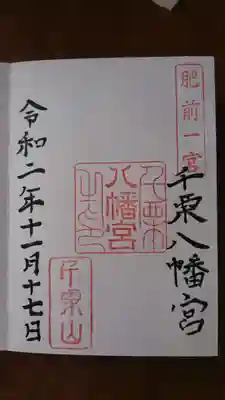 肥前一宮
千栗八幡宮
八幡宮
千栗山
令和二年十一月十七日